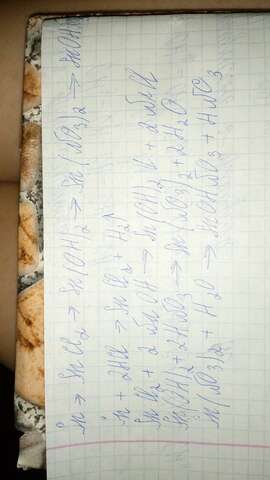 Sn → SnCl₂ → Sn(OH)₂ → Sn(NO₃)₂ → SnOH
Sn + 2HCl → SnCl₂ + H₂↑
SnCl₂ + 2NaOH → Sn(OH)₂↓ + 2NaCl
Sn(OH)₂ + 2HNO₃ → Sn(NO₃)₂ + 2H₂O
n(NO₃)₂ + H₂O → SnOHNO₃ + HNO₃